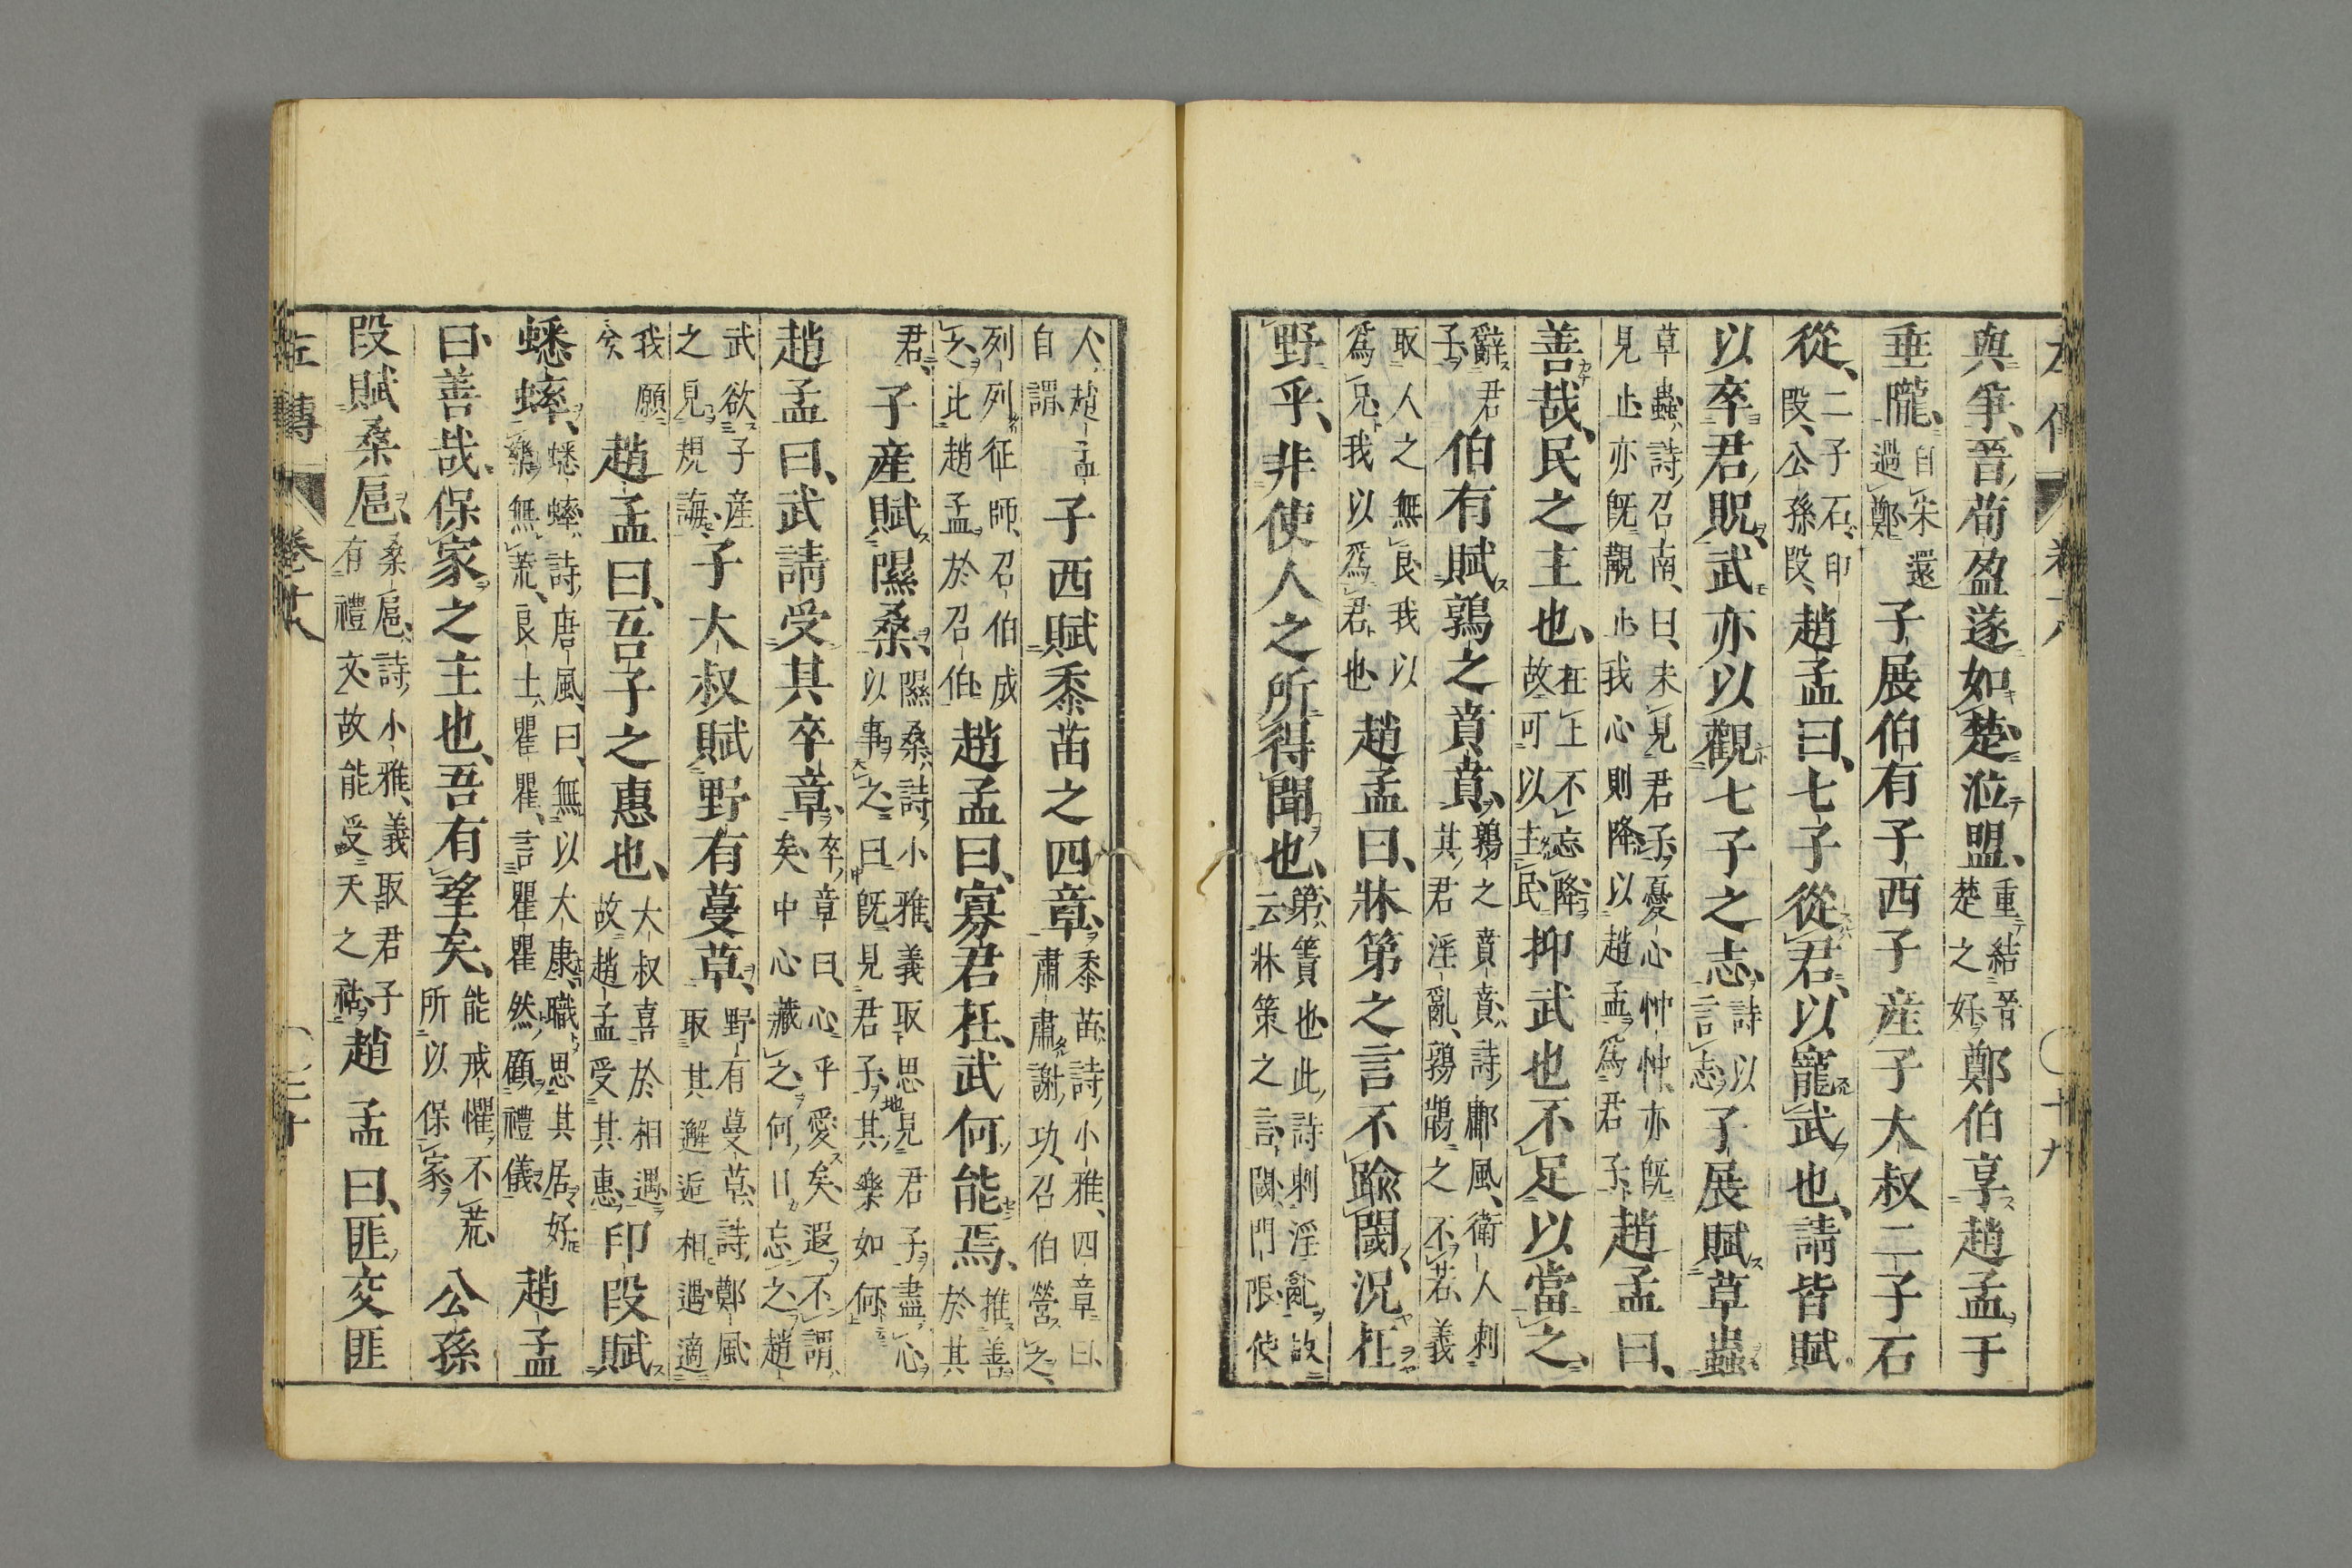 左傳 卷十八 ○十九
與爭、晉荀盈遂如楚涖盟、重結晉楚之好鄭伯享趙孟于
垂隴、自宋還過鄭子展伯有子西子產子大叔二子石
從、二子石、印段、公孫段、趙孟曰、七子從君、以寵武也、請皆賦
以卒君貺、武亦以觀七子之志、詩以言志子展賦草蟲
草蟲、詩召南、曰、未見君子、憂心忡忡、亦既見止亦既覯止、我心則降、以趙孟爲君子趙孟曰、
善哉、民之主也、在上不忘降、故可以主民抑武也不足以當之、
辭君子伯有賦鶉之賁賁、鶉之賁賁、詩鄘風、衛人刺其君淫亂、鶉鵲之不若、義
取人之無良我以爲兄、我以爲君也趙孟曰、牀第之言不踰閾、況在
野乎、非使人之所得聞也、第、簀也、此詩刺淫亂、故云牀策之言、閾、門限、使
人、趙孟自謂子西賦黍苗之四章、黍苗、詩小雅、四章曰、肅肅謝功、召伯營之、
列列征師、召伯成之、比趙孟於召伯趙孟曰、寡君在、武何能焉、推善於其
君、子產賦隰桑、隰桑、詩小雅、義取思見君子、盡心以事之、曰既見君子、其樂如何
趙孟曰、武請受其卒章、卒章曰、心乎愛矣、遐不謂矣、中心藏之、何日忘之、趙
武欲子產之見規誨子大叔賦野有蔓草、野有蔓草、詩鄭風、取其邂逅相遇適
我願矣趙孟曰、吾子之惠也、大叔喜於相遇、故趙孟受其惠印段賦
蟋蟀、蟋蟀、詩唐風、曰、無以大康、職思其居、好樂無荒、良士瞿瞿、言瞿瞿然、顧禮儀趙孟
曰、善哉、保家之主也、吾有望矣、能戒懼、不荒、所以保家公孫
段賦桑扈、桑扈、詩小雅、義取君子有禮文、故能受天之祜、趙孟曰、匪交匪
左傳 卷十八 ○二十